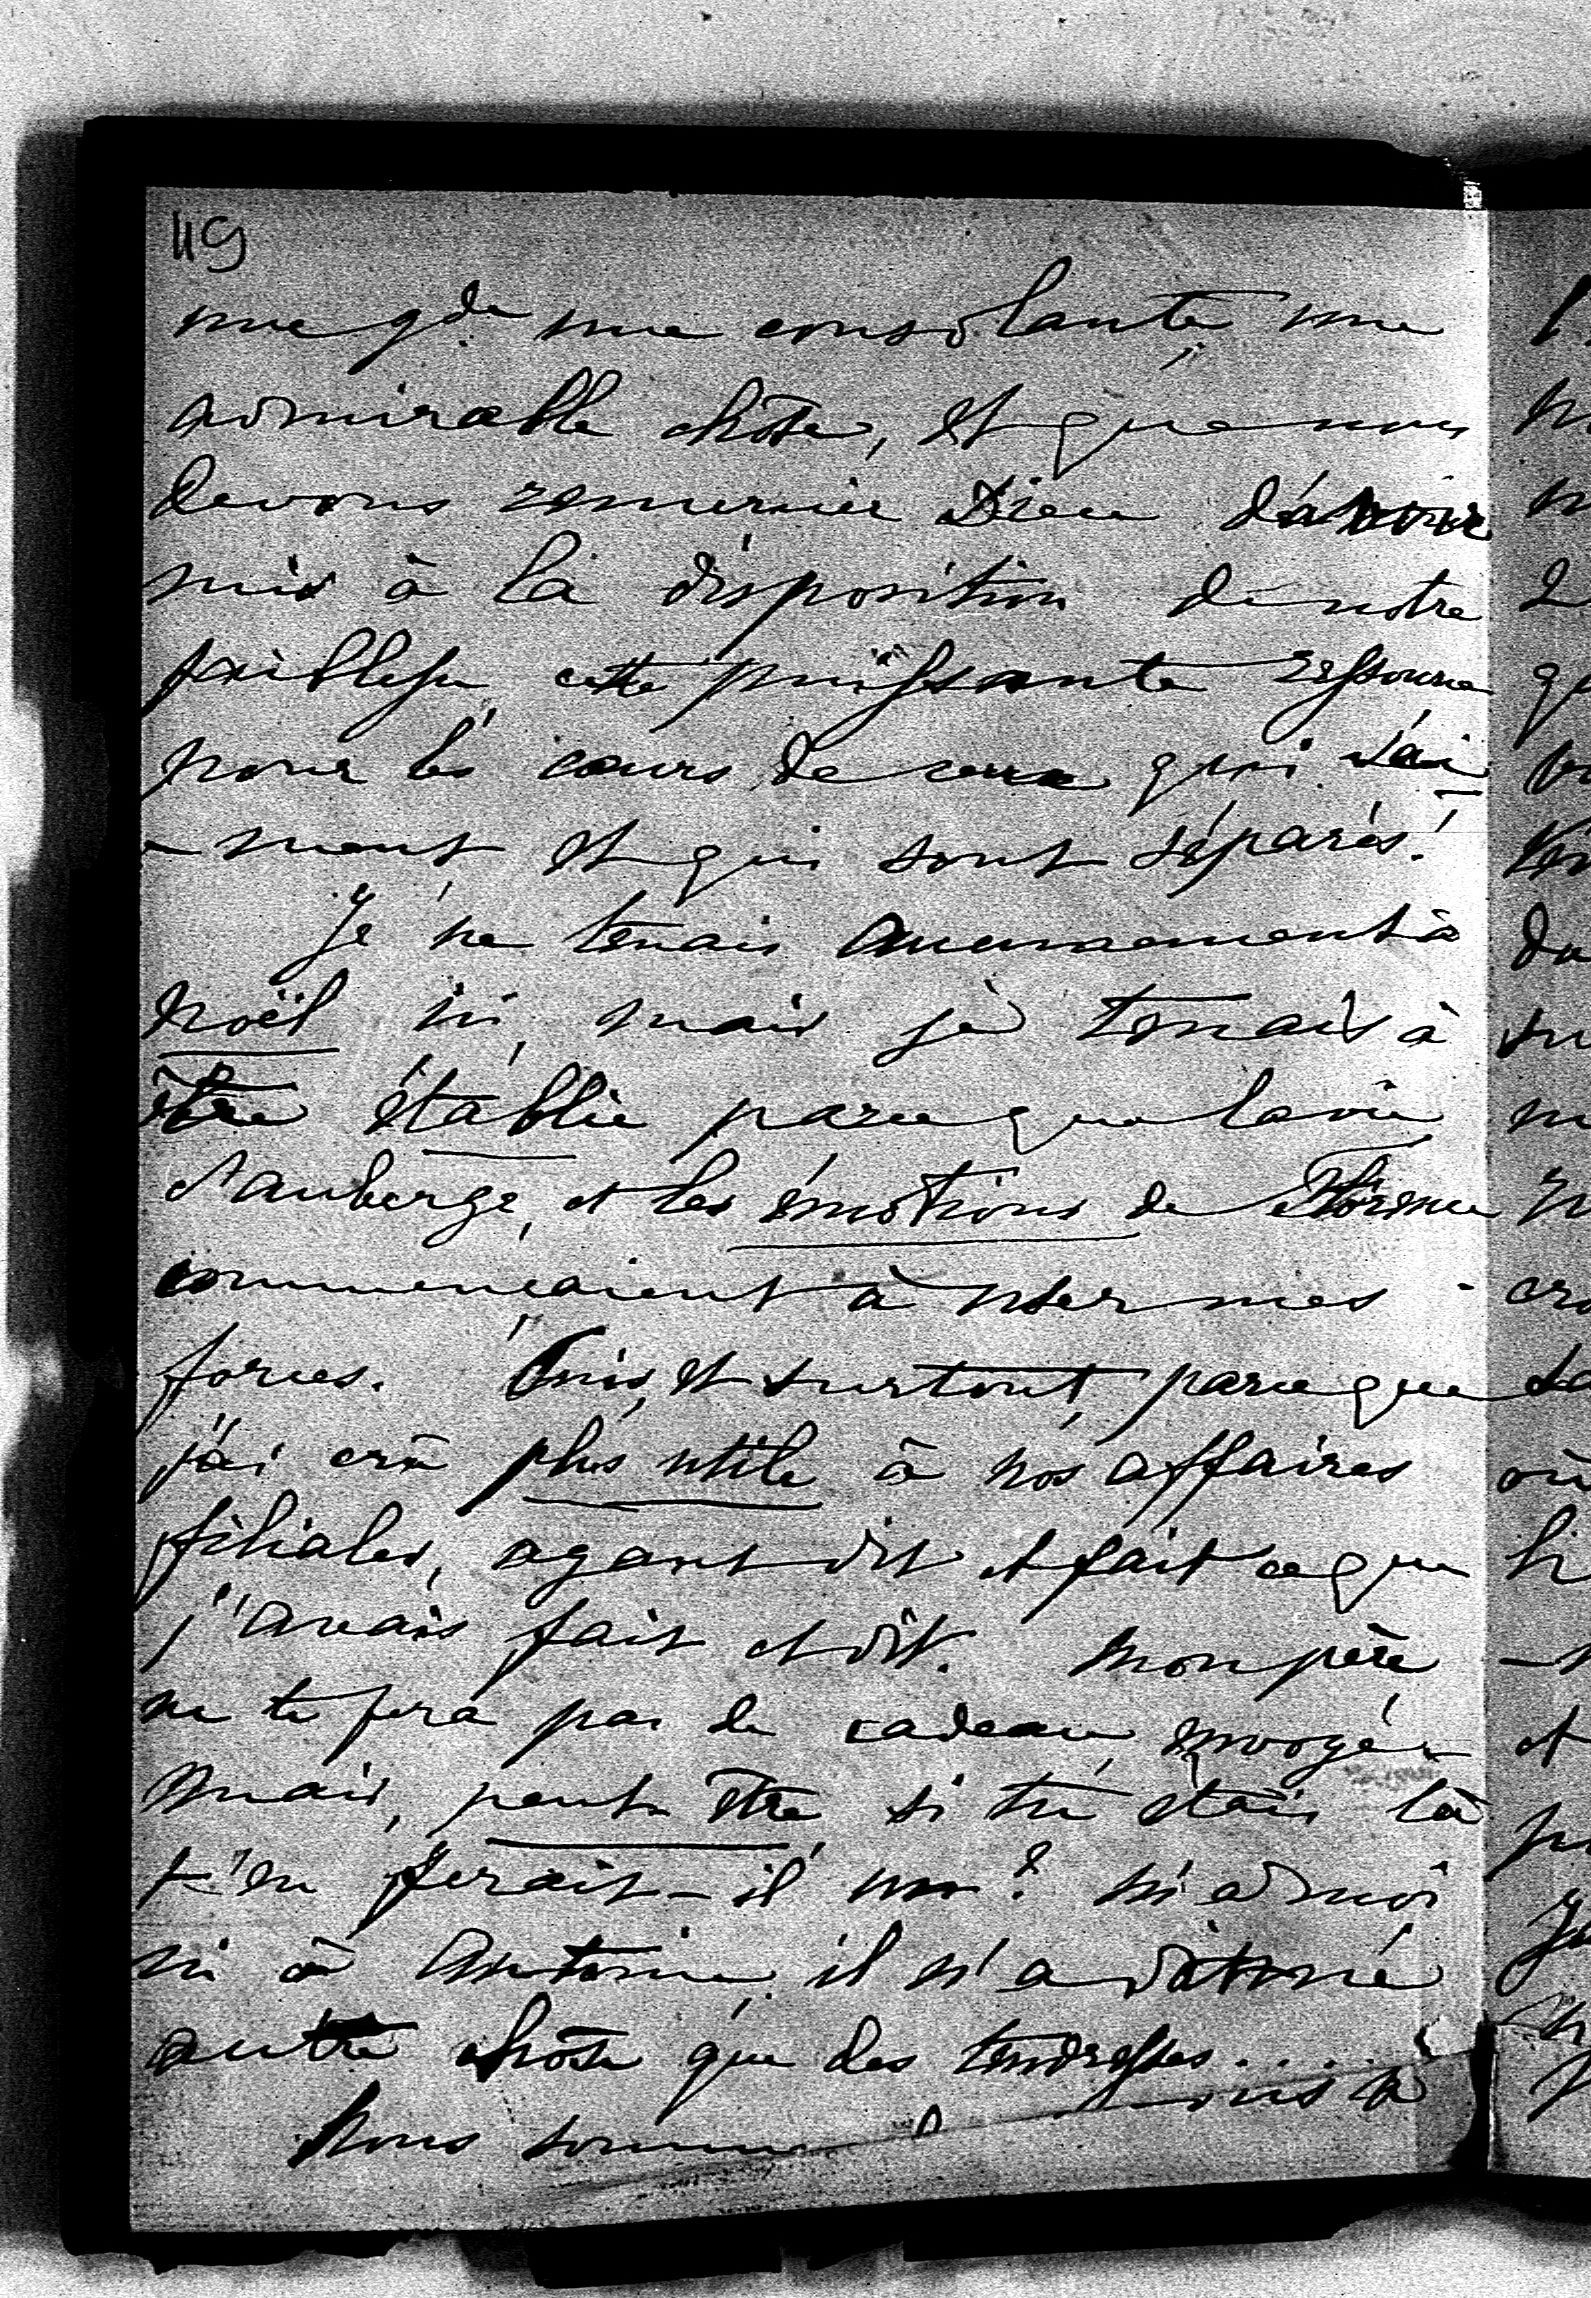 49
une gde une consolante, une
admirable chose, et que nous
devons remercier Dieu d'avoir
mis à la disposition de notre
faiblesse cette puissante ressource
pour les cœurs de ceux qui s'ai
-ment et qui sont séparés!
Je ne tenais aucunement à
Noël ici, mais je tenais à
être établie parceque la vie
d'auberge, et les émotions de Florence
commençaient à user mes
forces. Puis, et surtout, parceque
j'ai cru plus utile à nos affaires
filiales, ayant dit et fait ce que
j'avais fait et dit. Mon père
ne te fera pas de cadeau envoyé -
mais, peut-être, si tu étais là
t'en ferait-il un? Ni à moi
ni à Antoine, il n'a donné
autre chose que des tendresses....
Nous sommes